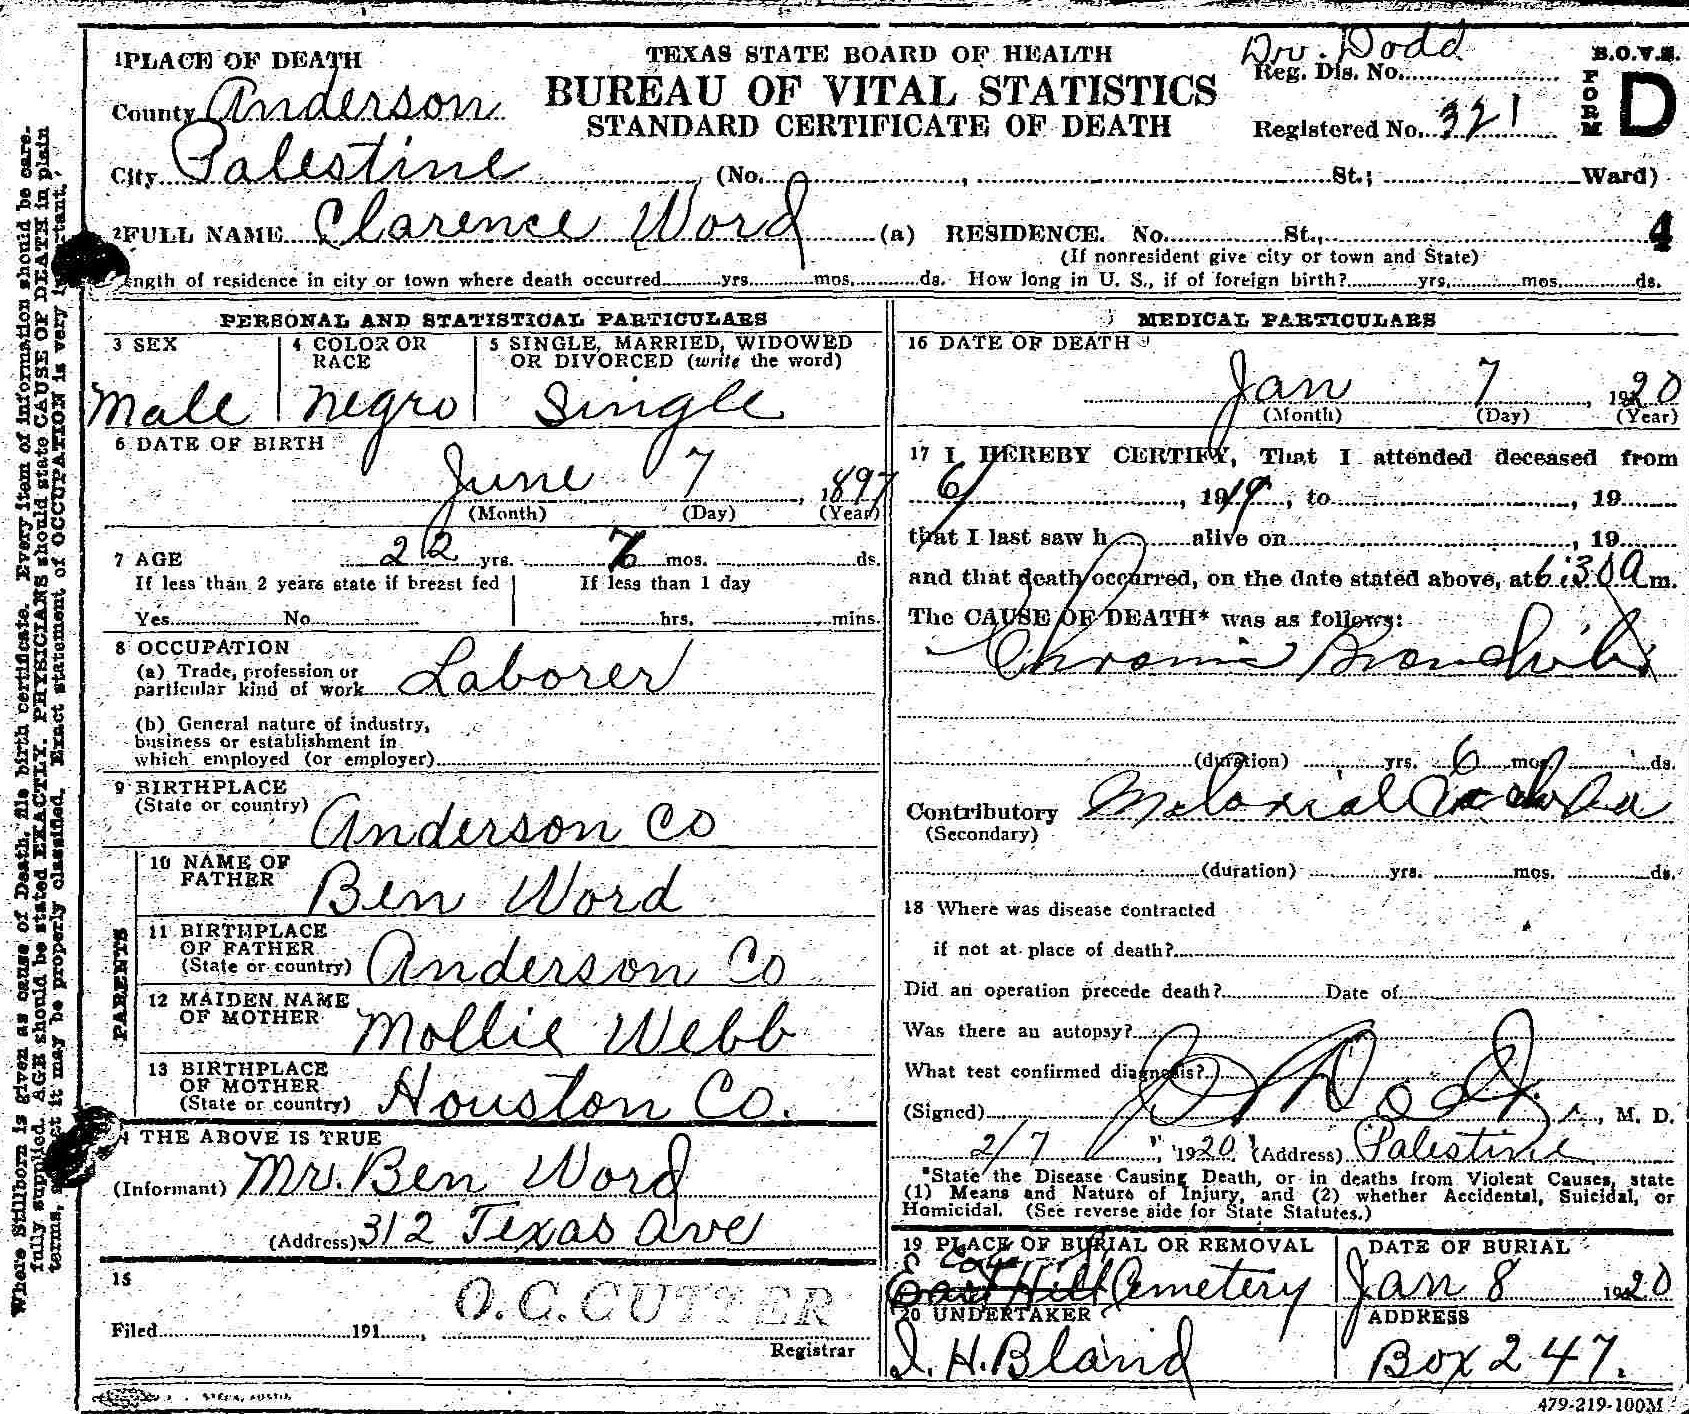 Where Stillborn is given as cause of Death, file birth certificate. Every item of information should be care-
fully supplied. AGE should be stated EXACTLY. PHYSICIANS should state CAUSE OF DEATH in plain
terms, it may be properly classified. Exact statement of OCCUPATION is very
Dr. Dodd
1 PLACE OF DEATH
TEXAS STATE BOARD OF HEALTH
Reg. Dis. No.
B.O.V.S.
FORM D
County Anderson
BUREAU OF VITAL STATISTICS
STANDARD CERTIFICATE OF DEATH
Registered No. 321
City Palestine (No. , St.; Ward)
2 FULL NAME Clarence Word (a) RESIDENCE. No. St., 4
(If nonresident give city or town and State)
ength of residence in city or town where death occurred yrs. mos. ds. How long in U. S., if of foreign birth? yrs. mos. ds.
PERSONAL AND STATISTICAL PARTICULARS
3 SEX
Male
4 COLOR OR RACE
Negro
5 SINGLE, MARRIED, WIDOWED
OR DIVORCED (write the word)
Single
6 DATE OF BIRTH
June 7, 1897
(Month) (Day) (Year)
7 AGE 22 yrs. mos. ds.
If less than 2 years state if breast fed
Yes No
If less than 1 day
hrs. mins.
8 OCCUPATION
(a) Trade, profession or
particular kind of work Laborer
(b) General nature of industry,
business or establishment in
which employed (or employer)
9 BIRTHPLACE
(State or country) Anderson Co
PARENTS
10 NAME OF
FATHER Ben Word
11 BIRTHPLACE
OF FATHER
(State or country) Anderson Co
12 MAIDEN NAME
OF MOTHER Mollie Webb
13 BIRTHPLACE
OF MOTHER
(State or country) Houston Co.
THE ABOVE IS TRUE
(Informant) Mr. Ben Word
(Address) 312 Texas Ave
15
Filed 191 , O. C. CUTLER
Registrar
MEDICAL PARTICULARS
16 DATE OF DEATH
Jan 7, 1920
(Month) (Day) (Year)
17 I HEREBY CERTIFY, That I attended deceased from
6/ , 1919, to , 19
that I last saw h alive on , 19
and that death occurred, on the date stated above, at 6:30 a m.
The CAUSE OF DEATH* was as follows:
Chronic Bronchitis
(duration) yrs. 6 mos. ds.
Contributory Malarial
(Secondary)
(duration) yrs. mos. ds.
18 Where was disease contracted
if not at place of death?
Did an operation precede death? Date of
Was there an autopsy?
What test confirmed diagnosis?
(Signed) Dodd, M. D.
2/7, 1920 (Address) Palestine
*State the Disease Causing Death, or in deaths from Violent Causes, state
(1) Means and Nature of Injury, and (2) whether Accidental, Suicidal, or
Homicidal. (See reverse side for State Statutes.)
19 PLACE OF BURIAL OR REMOVAL
East Hill Cemetery
DATE OF BURIAL
Jan 8 1920
20 UNDERTAKER
I. H. Bland
ADDRESS
Box 247.
479-219-100M